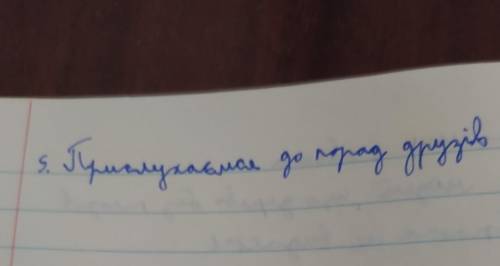 5. Прислухаємся до порад друзів